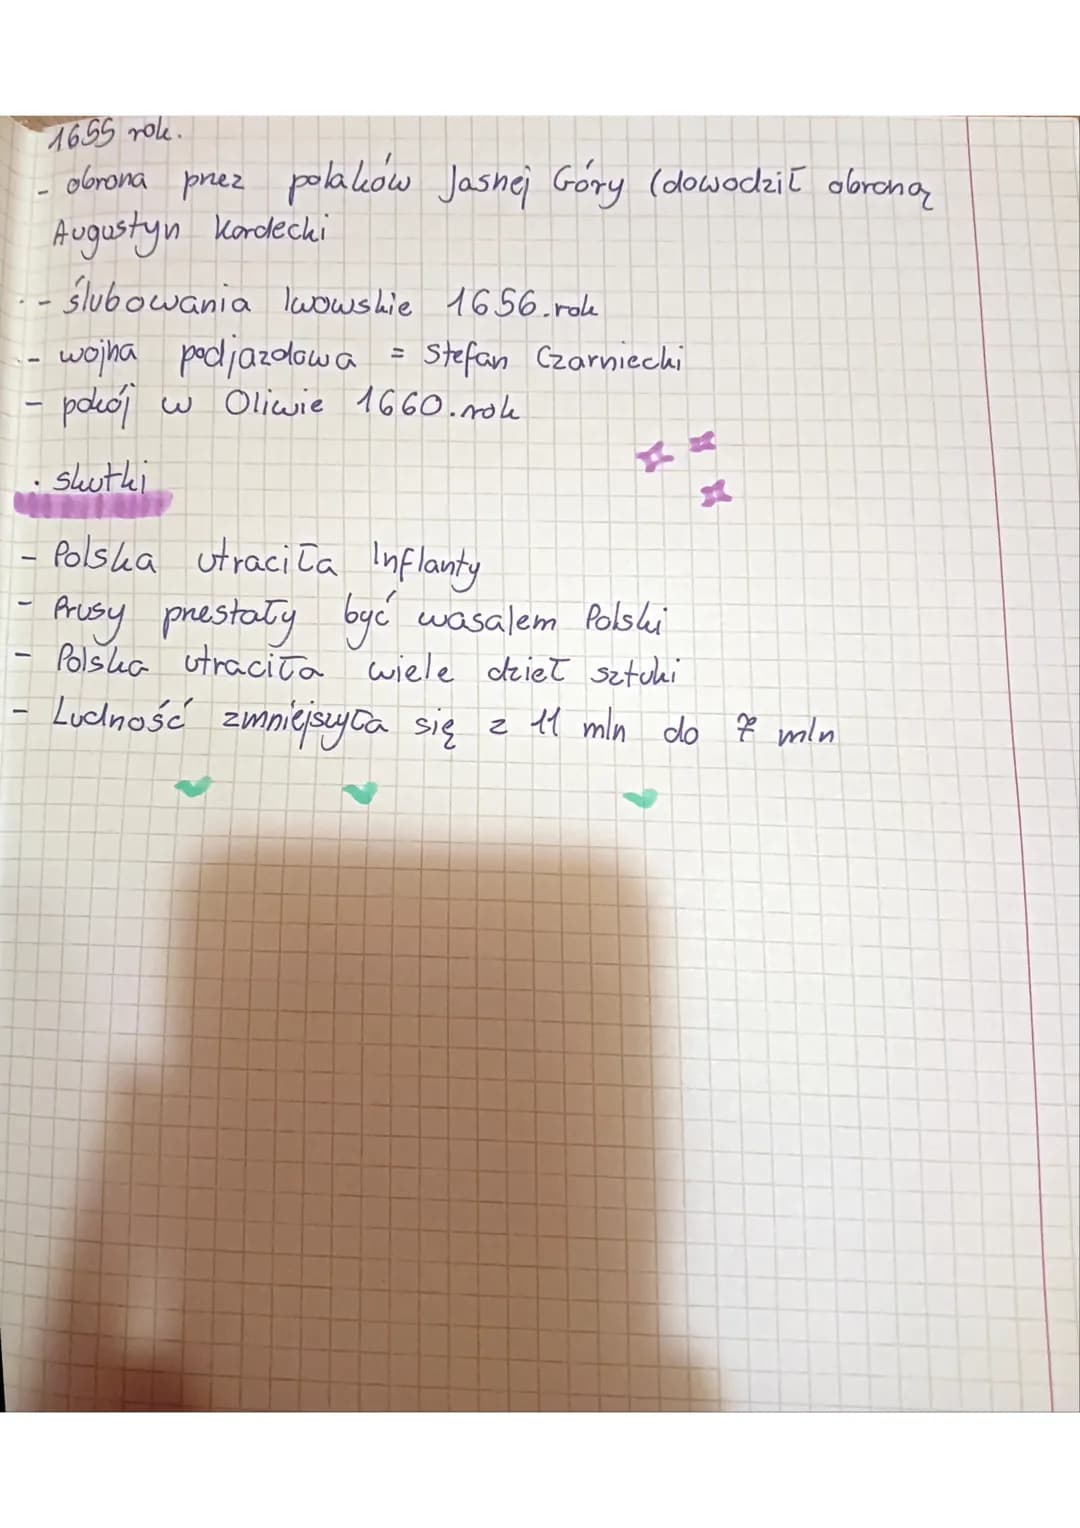 1655 rok.
- obrona przez polaków Jasnej Góry (dowodził obroną
Augustyn Kordecki
- ślubowania lwowskie 1656.rok
- wojna podjazdowa = Stefan Czarniecki
- pokój w Oliwie 1660.rok
. skutki
- Polska utraciła Inflanty
- Prusy przestały być wasalem Polski
- Polska utraciła wiele dzieł sztuki
- Ludność zmniejszyła się z 11 mln do 7 mln